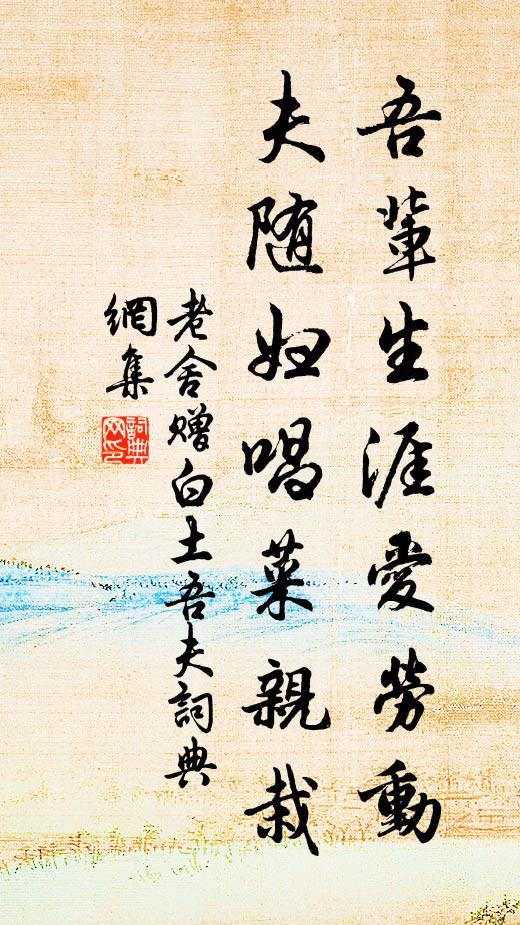 吾輩生涯愛勞動
夫随妇唱菜親栽
老舍赠白土吾夫詞典
網集
詞典
网印